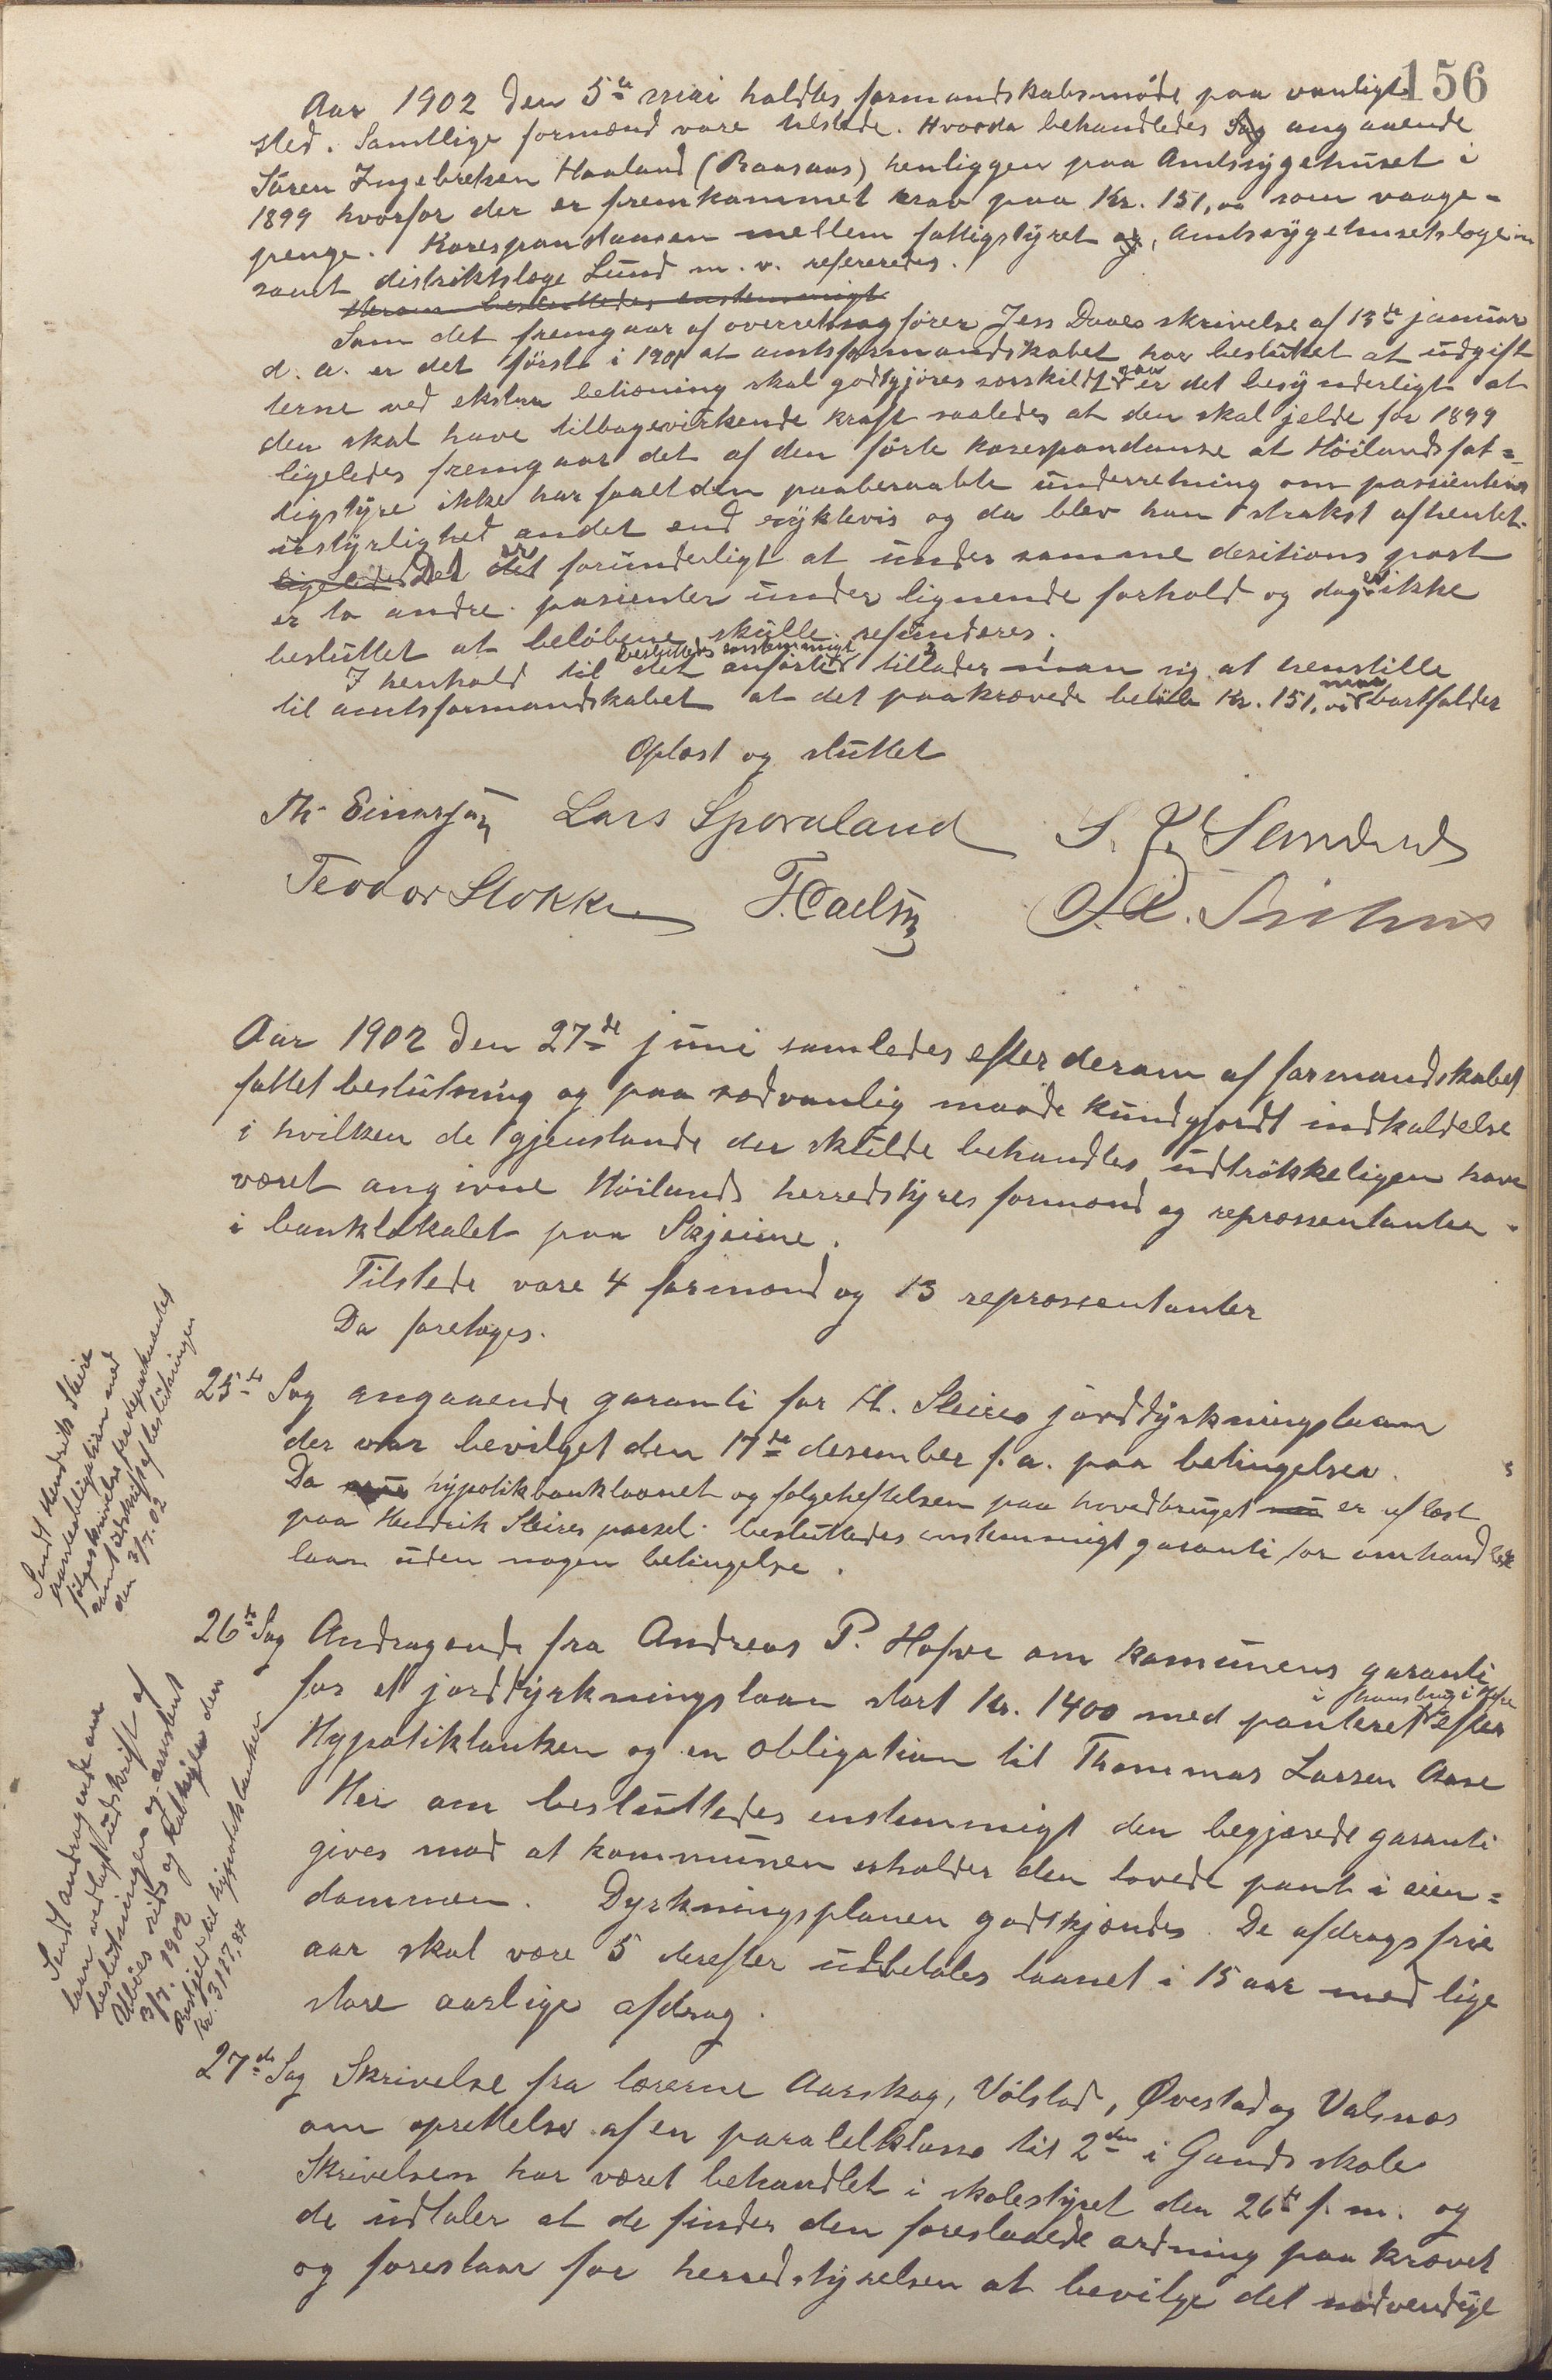 156
Aar 1902 den 5te mai holdtes formandskabsmøde paa vanligt
sted. Samtlige formænd vare tilstede. Hvorda behandledes Sag angaaende
Søren Ingebretsen Haaland (Raasaas) henliggen paa Amtssygehuset i
1899 hvorfor der er fremkommet krav paa Kr. 151,00 som vaage=
penge. Korespondansen mellem fattigstyret og, Amtssygehusetslægen
samt distriktslæge Lund m. v. refereredes.
Herom besluttedes enstemmigt
Som det fremgaar af overretssagfører Jess Daaes skrivelse af 13te januar
d. a. er det først i 1901 at amtsformandskabet har besluttet at udgift
terne ved ekstra betjæning skal godtgjøres særskildt er det besynderligt at
den skal have tilbagevirkende kraft saaledes at den skal jelde for 1899
ligeledes fremgaar det af den førte korespondanse at Høilands fat=
tigstyre ikke har faaet den paaberaabte underretning om pasientens
ustyrlighed andet end rygtevis og da blev han strakst afhentet.
ligeledes Det er forunderligt at under samme desitions post
er to andre pasienter under lignende forhold og dog er ikke
besluttet at beløbene skulle refunderes.
besluttedes enstemmigt
I henhold til det anførte tillader man sig at henstille
til amtsformandskabet at det paakrævede beløb Kr. 151,00 maa bortfalder
Oplæst og sluttet
Th. Einarsen Lars Sporaland S. J. Sandved
Teodor Stokke
Aar 1902 den 27de juni samledes efter derom af formandskabet
fattet beslutning og paa sædvanlig maade kundgjordt indkaldelse
i hvilken de gjenstande der skulde behandles udtrøkkeligen have
været angivne Høilands herredstyres formænd og repræsentanter
i banklokalet paa Skjeine.
Tilstede vare 4 formænd og 13 repræsentanter
Da foretoges.
25te Sag angaaende garanti for H. Skeires jorddyrkningslaan
der var bevilget den 17te desember f. a. paa betingelser.
Da hypotikbanklaanet og følgeheftelsen paa hovedbruget er aflæst
paa Hendrik Skeires parsel besluttedes enstemmigt garanti for omhandlede
laan uden nogen betingelse.
Sendt Hendrik Skeire
panteobligation med
følgeskrivelse fra departementet
samt udskrift af beslutningen
den 3/7. 02
26te Sag Andragende fra Andreas P. Hofve om komunens garanti
i hans brug i Hofve
for et jorddyrkningslaan stort Kr. 1400 med panteret efter
Hypotikbanken og en obligation til Thommas Larsen Aase
Her om besluttedes enstemmigt den begjærede garanti
gives mod at kommunen erholder den lovede pant i eien=
dommen. Dyrkningsplanen godkjendes. De afdragsfrie
aar skal være 5 derefter udbetales laanet i 15 aar med lige
store aarlige afdrag.
Sendt andragende om
laan vedlagt udskrift af
beslutningen og assistent
3/7. 1902
hypotikbanken
Kr. 3127,84
27de Sag Skrivelse fra lærerne Aarskog, Vølstad, Øvestad og Valsnæs
om oprettelse af en paralelklasse til 2den i Gands skole
Skrivelsen har været behandlet i skolestyret den 26te f. m. og
de udtaler at de finder den foreslaaede ordning paa krævet
og foreslaar for herredstyrelsen at bevilge det nødvendige